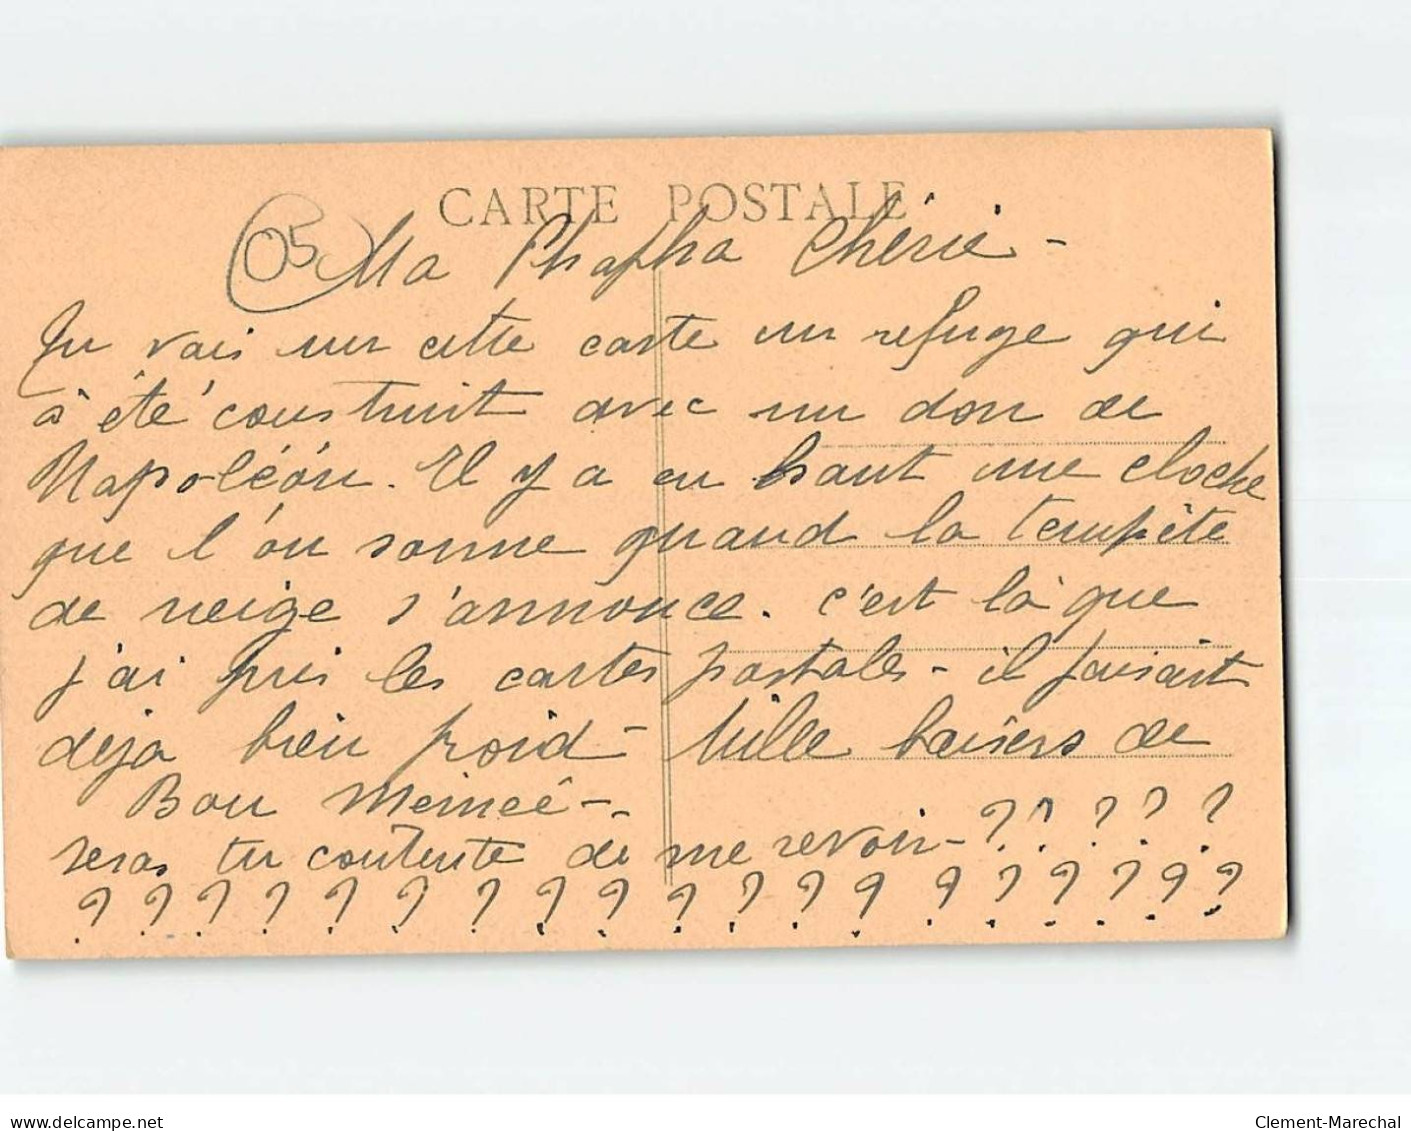 CARTE POSTALE
05
Ma Phapha Chérie -
Tu vois sur cette carte un refuge qui
a été construit avec un don de
Napoléon. Il y a en haut une cloche
que l'on sonne quand la tempête
de neige s'annonce. c'est là que
j'ai pris les cartes postales - il faisait
deja bien froid - Mille baisers de
Bon Mémeé -.
seras tu contente de me revoir - ? ? ? ? ?
? ? ? ? ? ? ? ? ? ? ? ? ? ? ? ? ? ? ?
delcampe.net
Clement-Marechal